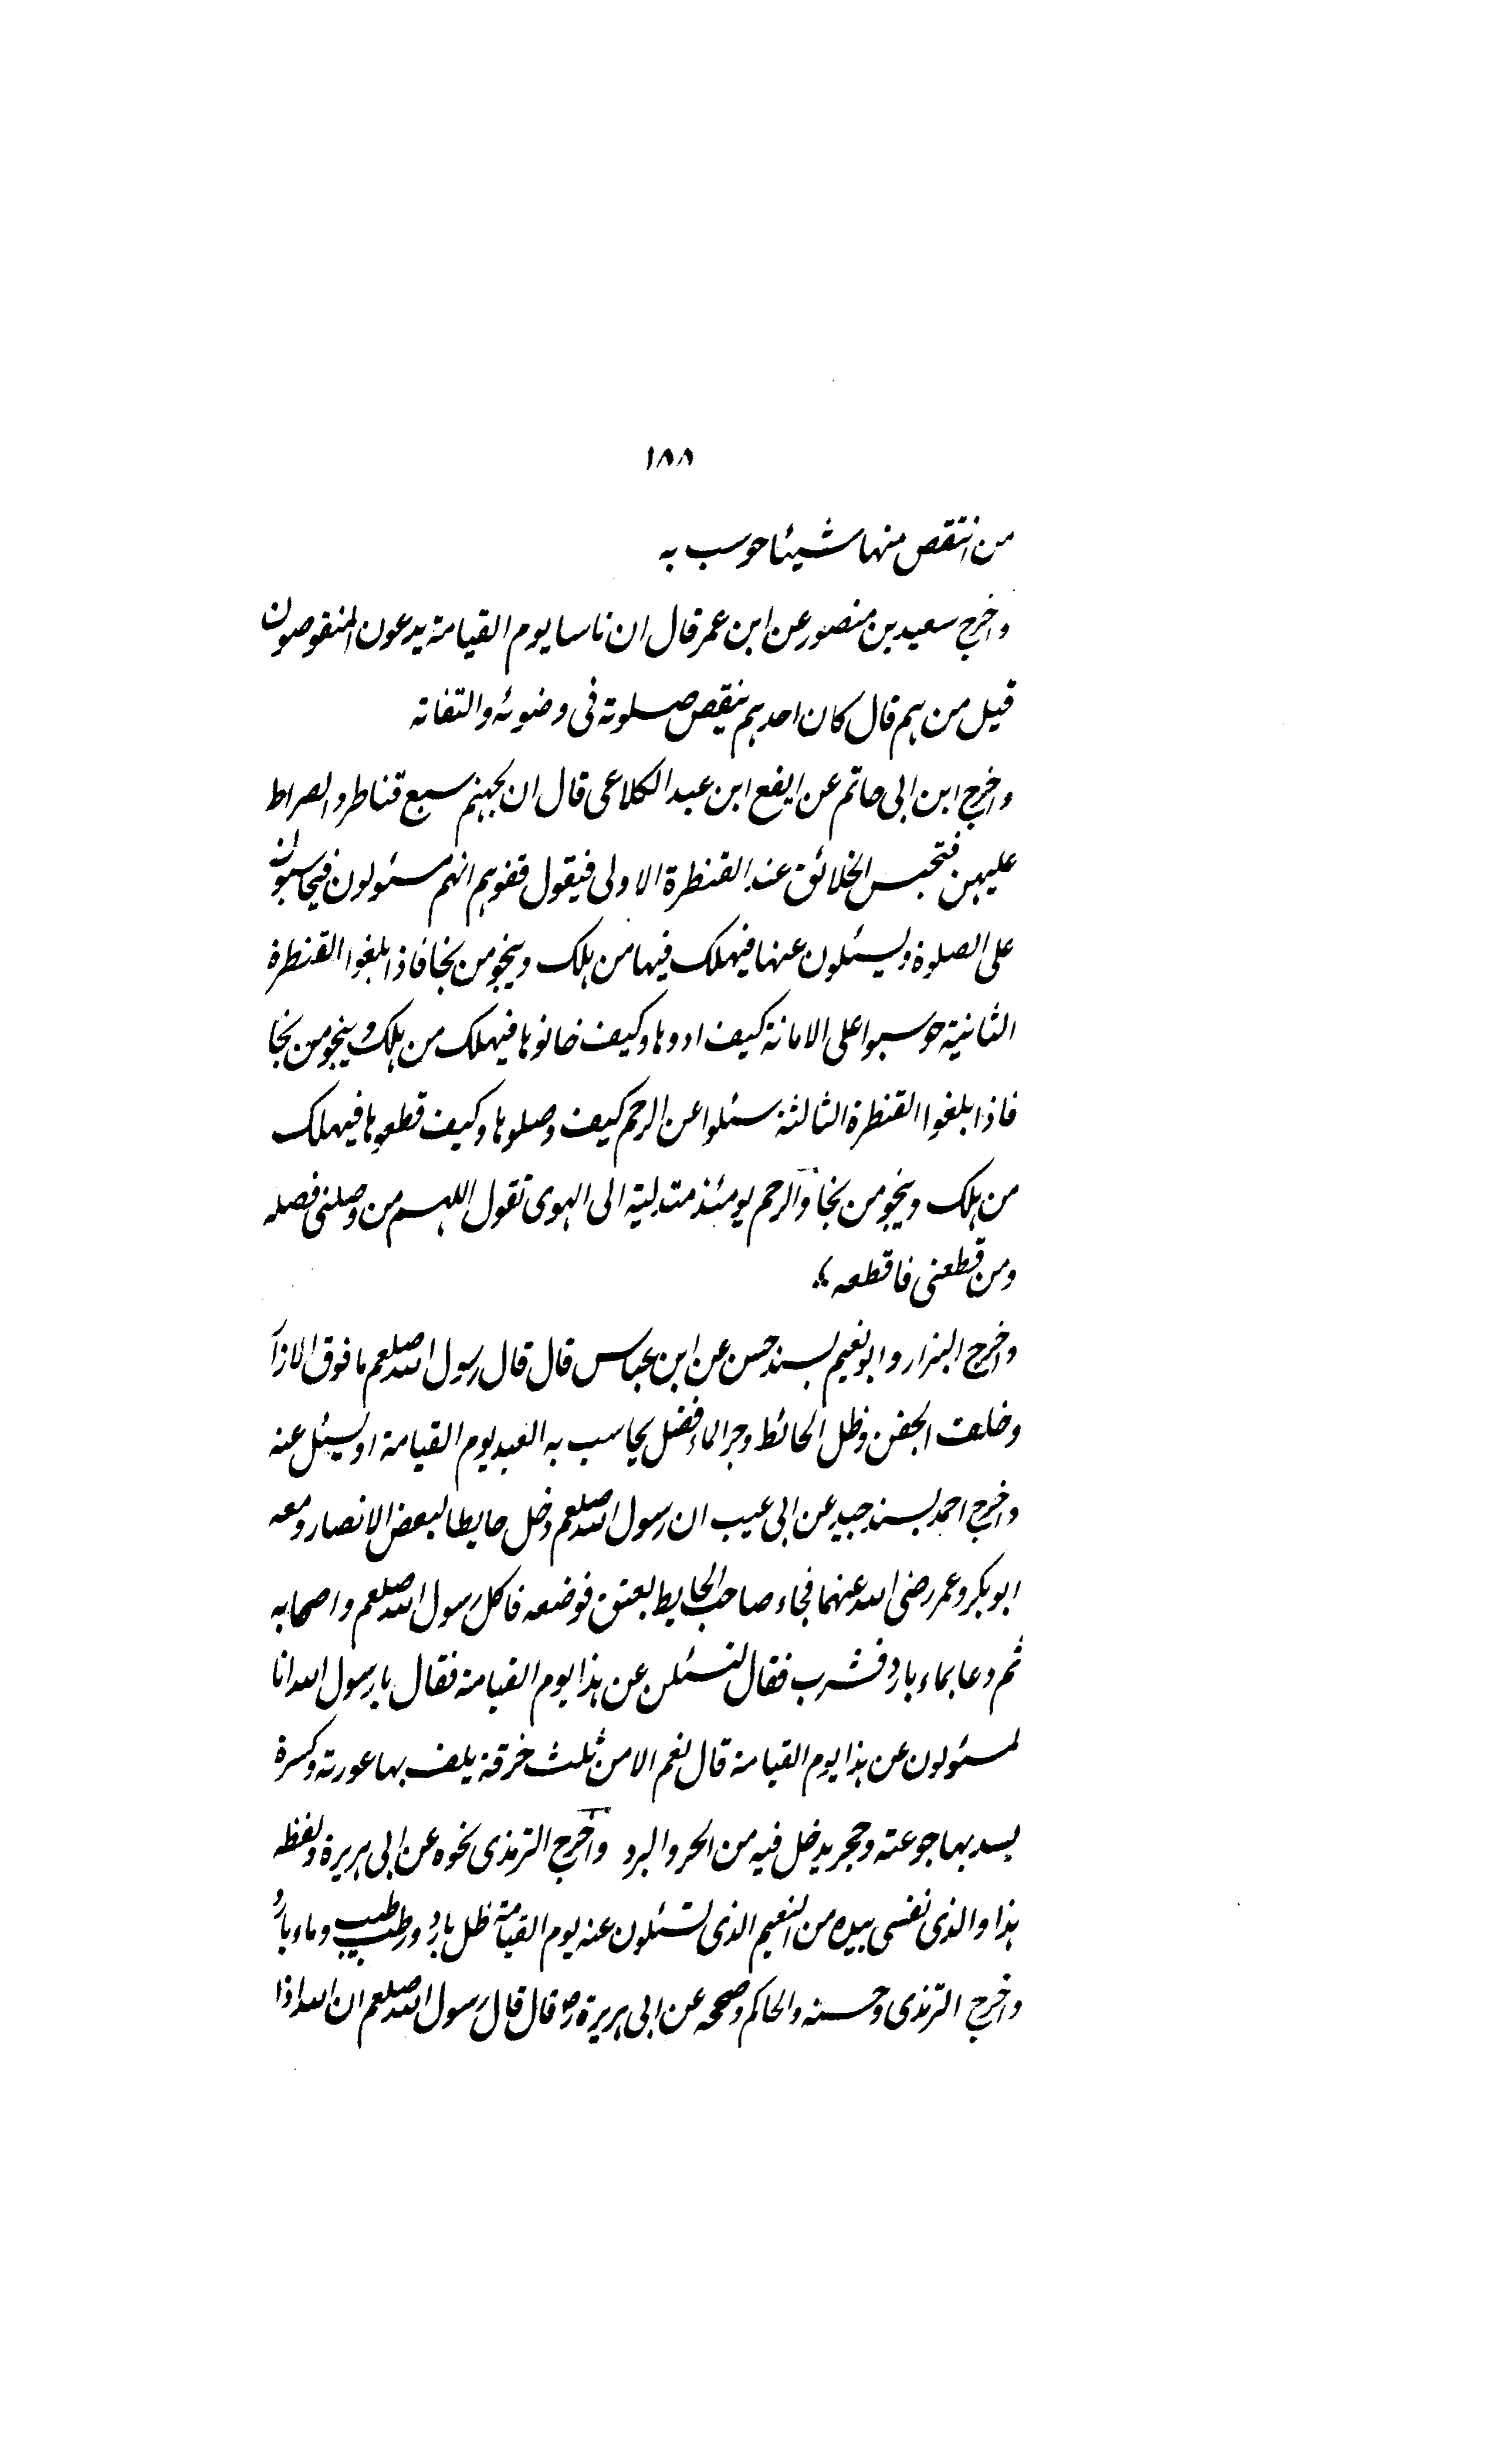 ١٨٨
من انتقص منها شيئا حوسب به
واخرج سعيد بن منصور عن ابن عمر قال ان ناسا يوم القيامة يدعون المنقوصون
قيل من ہم قال كان احدہم ينقص صلوته فى وضوئه والتفاته
واخرج ابن ابى حاتم عن ايفع ابن عبد الكلاعى قال ان لجہنم سبع قناطر والصراط
عليہن فتحبس الخلائق عند القنطرة الاولى فيقول قفوہم انہم مسئولون فيحاسبون
على الصلوة ويسئلون عنہا فيہلك فيہا من ہلك وينجو من نجا فاذا بلغوا القنطرة
الثانية حوسبوا على الامانة كيف ادوہا وكيف خانوہا فيہلك من ہلك وينجو من نجا
فاذا بلغوا القنطرة الثالثة سئلوا عن الرحم كيف وصلوہا وكيف قطعوہا فيہلك
من ہلك وينجو من نجا والرحم يومئذ متدلية الى الہوى تقول اللہم من وصلنى فصله
ومن قطعنى فاقطعه
واخرج البزار وابو نعيم بسند حسن عن ابن عباس قال قال رسول الله صلعم ما فوق الازآ
وخلف الجفن وظل الحائط وجر الماء فضل يحاسب به العبد يوم القيامة او يسئل عنه
واخرج احمد بسند جيد عن ابى عيب ان رسول الله صلعم دخل حايطا لبعض الانصار ومعه
ابو بكر وعمر رضى الله عنہما فجاء صاحب الحايط بعتق فوضعه فاكل رسول الله صلعم واصحابه
ثم دعا بماء بارد فشرب فقال لتسئلن عن ہذا يوم القيامة فقال يا رسول الله انا
لمسئولون عن ہذا يوم القيامة قال نعم الا من ثلث خرقة يلف بہا عورته وكسرة
يسد بہا جوعته وحجر يدخل فيه من الحر والبرد واخرج الترمذى نحوه عن ابى ہريرة ولفظه
ہذا والذى نفسى بيده من النعيم الذى تسئلون عنه يوم القيامة ظل بارد ورطب طيب وماء بارد
واخرج الترمذى وحسنه والحاكم وصححه عن ابى ہريرة رض قال قال رسول الله صلعم ان الله اذا